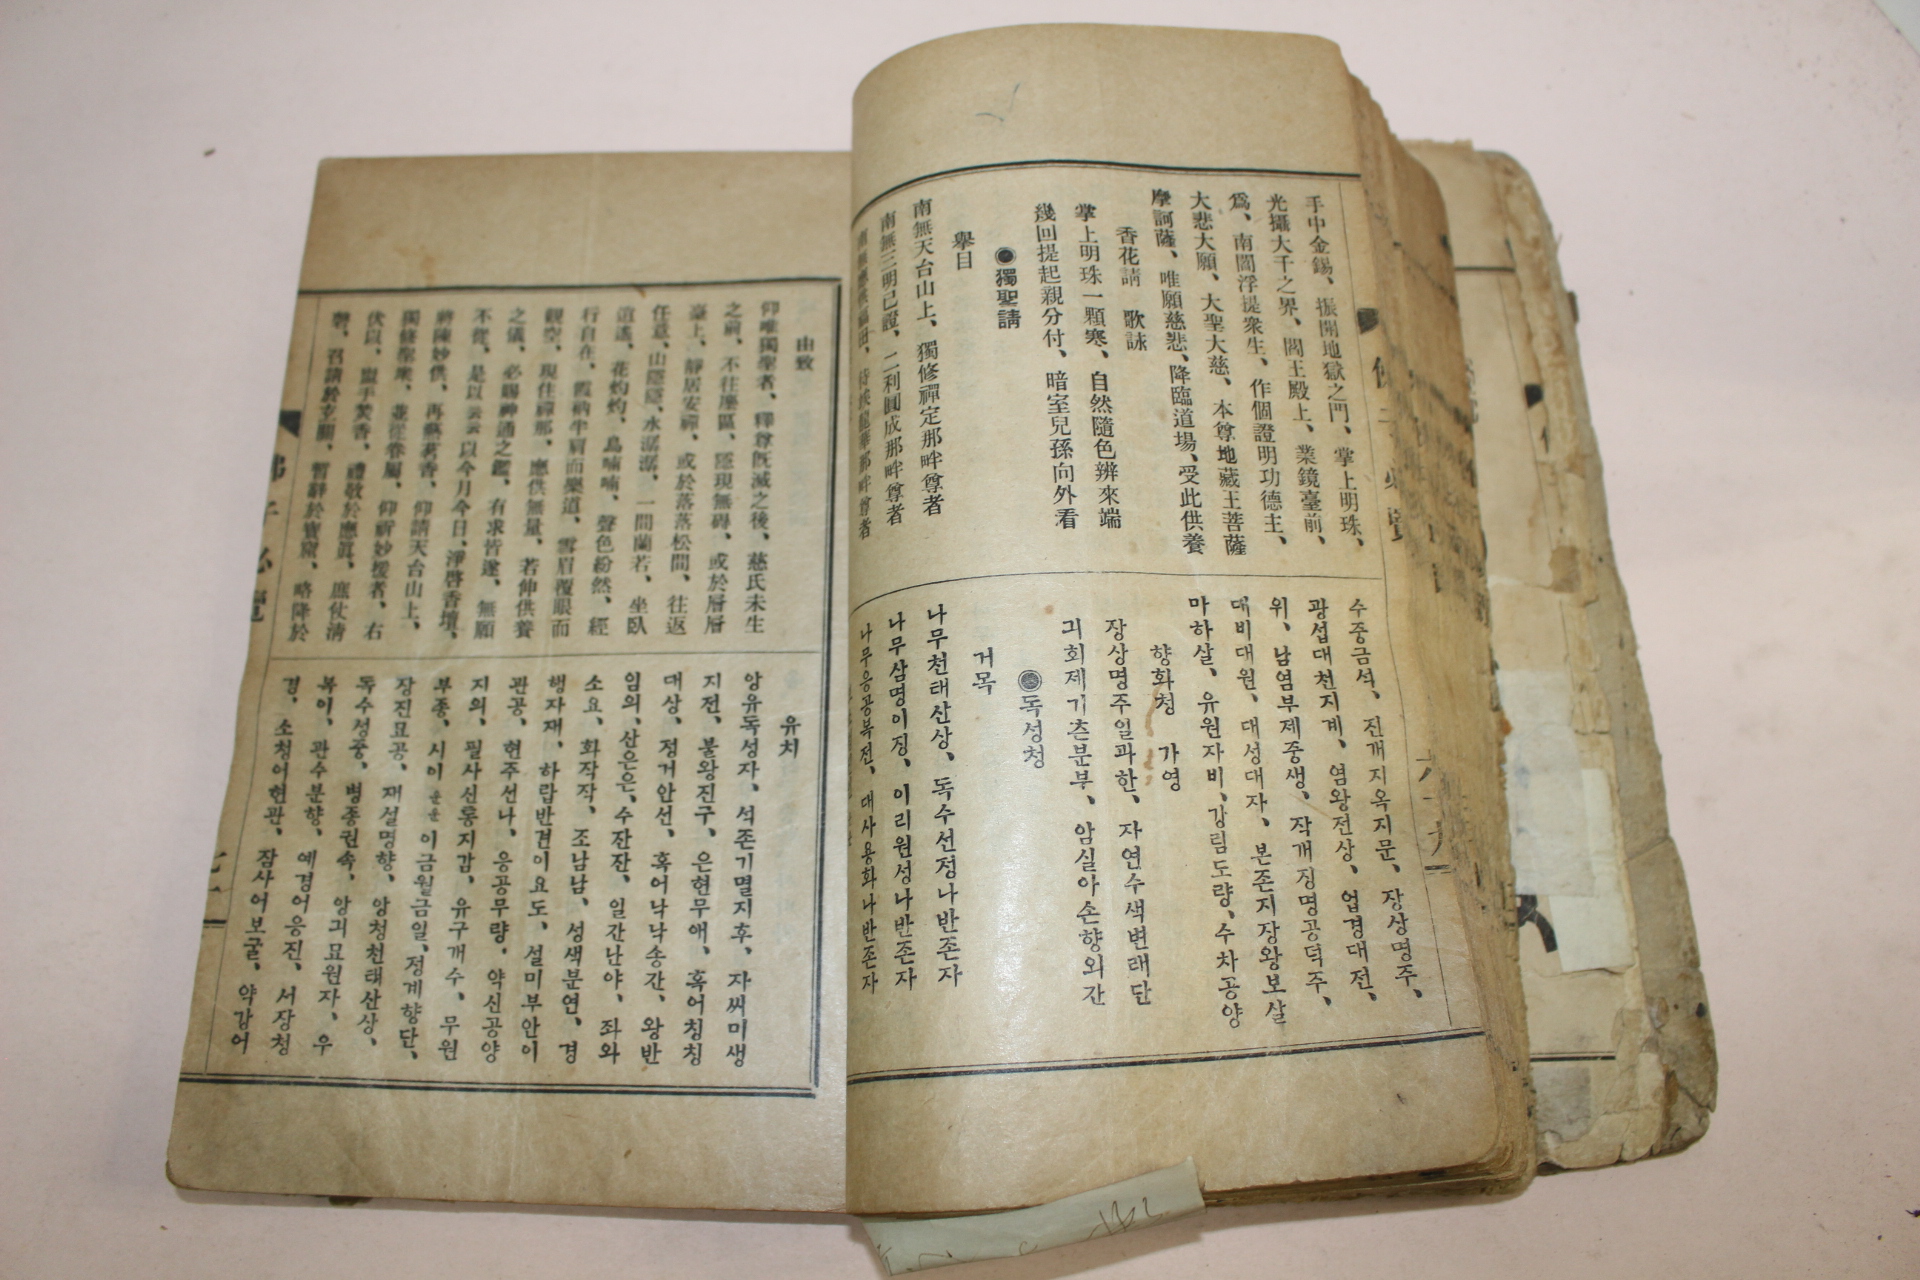 手中金錫、振開地獄之門、掌上明珠、
光攝大千之界、閻王殿上、業鏡臺前、
爲、南閻浮提衆生、作個證明功德主、
大悲大願、大聖大慈、本尊地藏王菩薩
摩訶薩、唯願慈悲、降臨道場、受此供養
香花請 歌詠
掌上明珠一顆寒、自然隨色辨來端
幾回提起親分付、暗室兒孫向外看
◉獨聖請
擧目
南無天台山上、獨修禪定那畔尊者
南無三明已證、二利圓成那畔尊者
南無應供福田、待竢龍華那畔尊者
수중금석、진개지옥지문、장상명주、
광섭대천지계、염왕전상、업경대전、
위、남염부제중생、작개징명공덕주、
대비대원、대성대자、본존지장왕보살
마하살、유원자비、강림도량、수차공양
향화청 가영
장상명주일과한、자연수색변래단
긔회제기츤분부、암실아손향외간
◉독성청
거목
나무천태산상、독수선정나반존자
나무삼명이징、이리원성나반존자
나무응공복전、대사용화나반존자
由致
仰唯獨聖者、釋尊旣滅之後、慈氏未生
之前、不往塵區、隱現無碍、或於層層
臺上、靜居安禪、或於落落松間、往返
任意、山隱隱、水潺潺、一間蘭若、坐臥
逍遙、花灼灼、鳥喃喃、聲色紛然、經
行自在、霞衲半肩而樂道、雪眉覆眼而
觀空、現住禪那、應供無量、若伸供養
之儀、必賜神通之鑑、有求皆遂、無願
不從、是以云云 以今月今日、淨啓香壇、
將陳妙供、再爇茗香、仰請天台山上、
獨修聖衆、並從眷屬、仰祈妙援者、右
伏以、盥手焚香、禮敬於應眞、庶仗清
磬、召請於玄關、暫辭於寶窟、略降於
유치
앙유독성자、석존기멸지후、자씨미생
지전、불왕진구、은현무애、혹어칭칭
대상、정거안선、혹어낙낙송간、왕반
임의、산은은、수잔잔、일간난야、좌와
소요、화작작、조남남、성색분연、경
행자재、하랍반견이요도、설미부안이
관공、현주선나、응공무량、약신공양
지의、필사신통지감、유구개수、무원
부종、시이 운운 이금월금일、정계향단、
장진묘공、재설명향、앙청천태산상、
독수성중、병종권속、앙긔묘원자、우
복이、관수분향、예경어응진、서장청
경、소청어현관、잠사어보굴、약강어